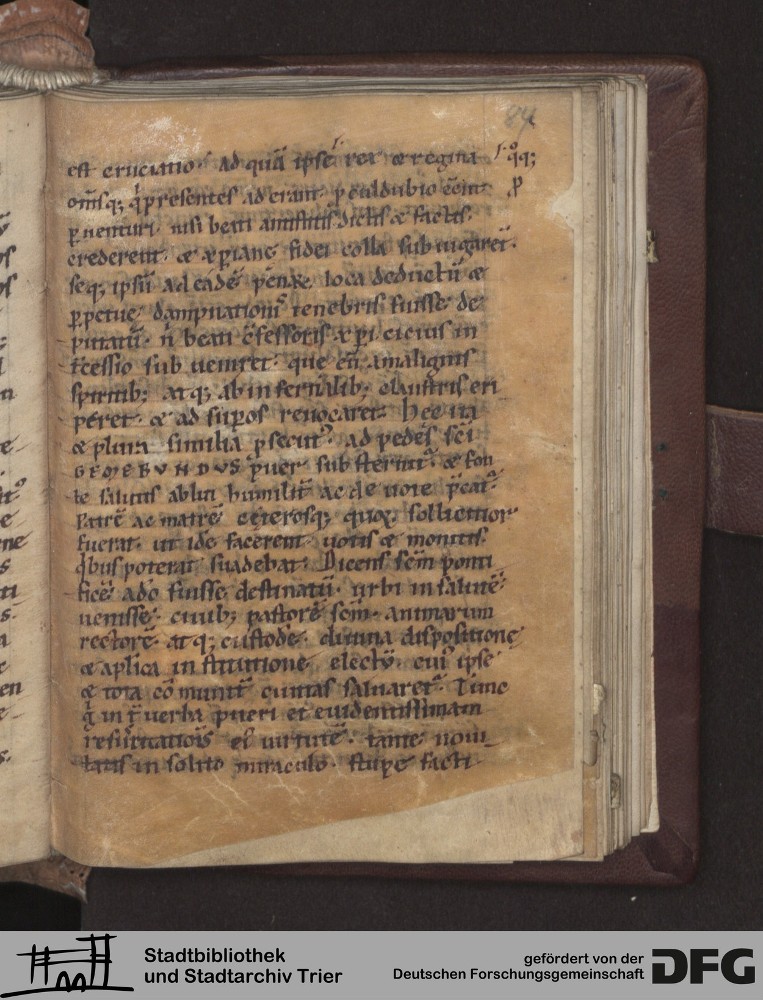 84
est cruciatio. Ad quā ipse rex & regina
om̄sq; q̇ presentes aderant. ꝓculdubio eēnt
ꝑuenturi. nisi beati antistitis dictis & factis.
crederent. & xp̄iane fidei colla subiugarēt.
seq; ipsū ad eadē loca deductū &
ꝑpetue dampnationis tenebris fuisse de
putatū. n̄ beati c̄fessoris xp̄i citius in
t̄cessio subueniret. que eū a malignis
spiritib; atq; ab infernalib; claustris eri
peret. & ad suꝑos reuocaret. Hec ita
& plura similia ꝓsecut᷒. ad pedes sc̄i
GEMEBVNDVS puer substernit᷑. & fon
te salutis ablui humilit̄ ac deuote p̄cat᷑.
Patrē ac matrē ceterosq; quoꝝ sollicitior
fuerat. ut idē facerent. uotis & monitis
q̇bus poterat suadebat. Dicens sc̄m ponti
ficē a dō fuisse destinatū. urbi in salutē.
uenisse. ciuib; pastorē sc̄m. animarum
rectorē. atq; custodē. diuina dispositione
& ap̄lica institutione electū. cui᷒ ipse
& tota cōmunit̄ ciuitas saluaret᷑. Tunc
g̊ int̄ uerba pueri et euidentissimam
resuscitatiōis ei᷒ uirtutē. tante noui
tatis insolito miraculo. stupefacti
Stadtbibliothek
und Stadtarchiv Trier
gefördert von der
Deutschen Forschungsgemeinschaft
DFG